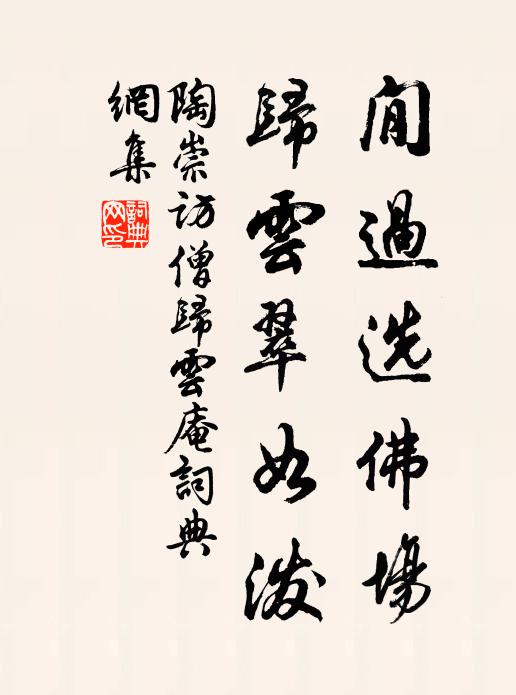 閒過选佛場
歸雲翠如泼
陶崇访僧歸雲庵詞典
網集
詞典
网印